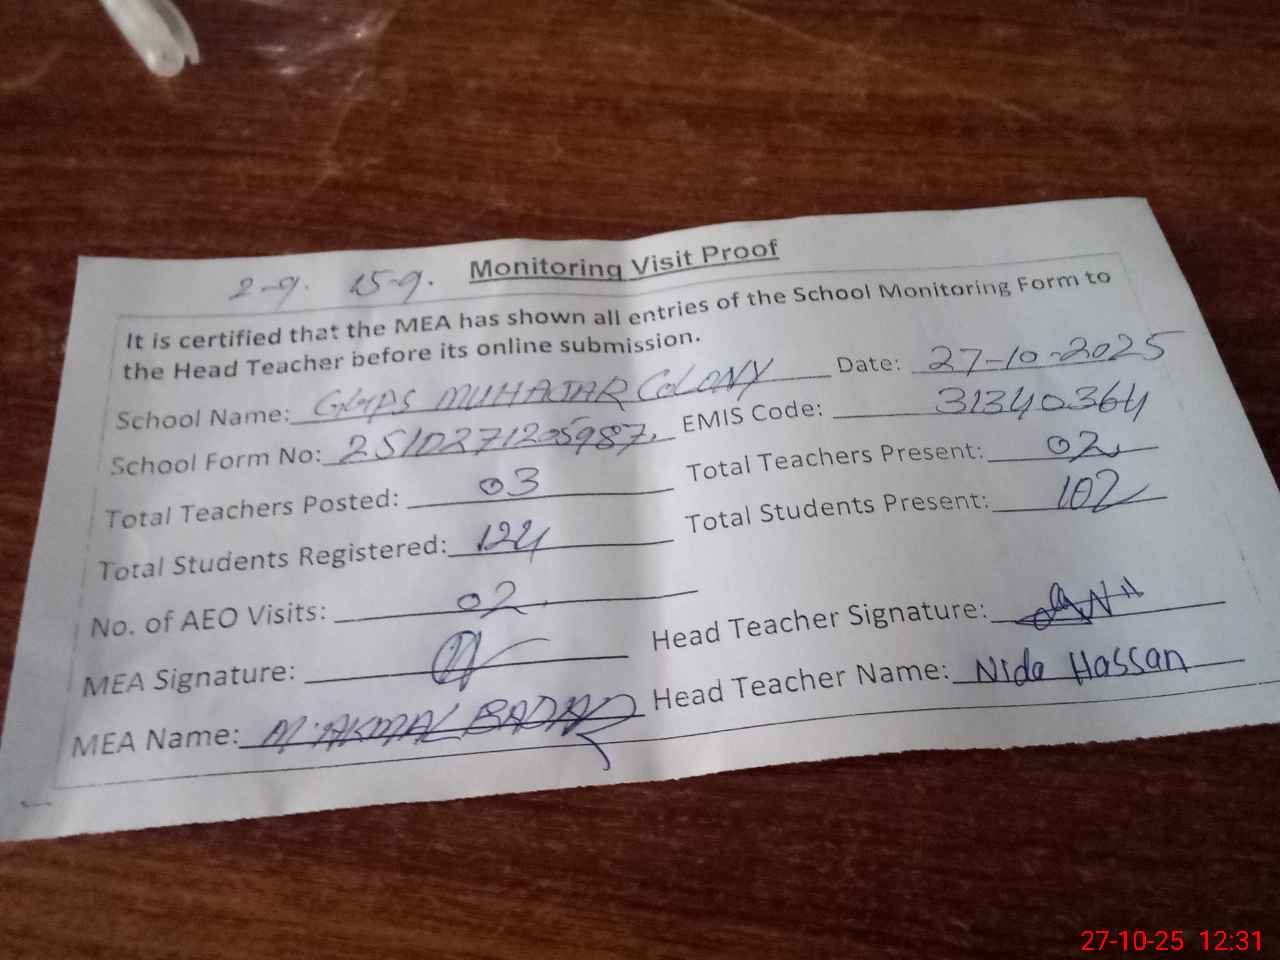 2-9. 15-9. Monitoring Visit Proof
It is certified that the MEA has shown all entries of the School Monitoring Form to
the Head Teacher before its online submission.
School Name: GMPS MUHAJAR COLONY Date: 27-10-2025
School Form No: 2510271205987, EMIS Code: 31340364
Total Teachers Posted: 03 Total Teachers Present: 02
Total Students Registered: 124 Total Students Present: 102
No. of AEO Visits: 02
MEA Signature: Head Teacher Signature:
MEA Name: M. AKMAL Head Teacher Name: Nida Hassan
27-10-25 12:31